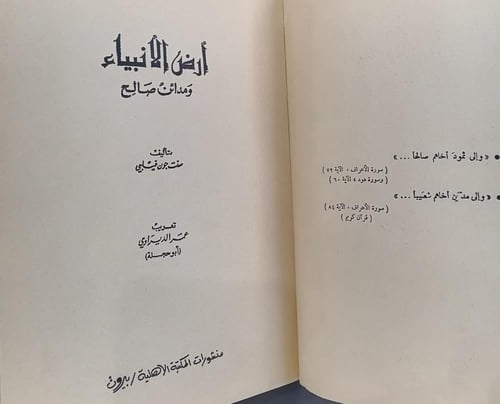 ● « وإلى ثمود أخاهم صالحاً ... »
( سورة الأعراف ، الآية ٧٢ )
( وسورة هود ، الآية ٦٠ )
● « وإلى مدين أخاهم شعيباً ... »
( سورة الأعراف ، الآية ٨٤ )
( قرآن كريم )
أرض الأنبياء
ومدائن صالح
تأليف
سنت جون فيلبي
تعريب
عمر الديراوي
(أبو حجلة)
منشورات المكتبة الأهلية / بيروت